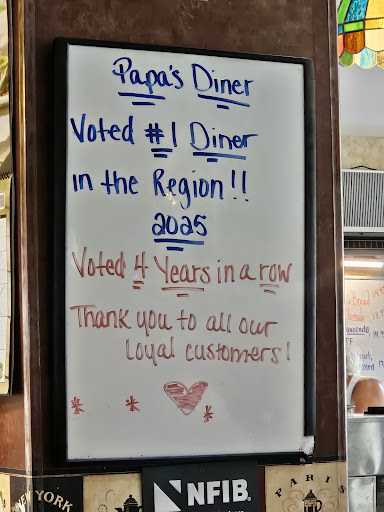 Papa's Diner
Voted #1 Diner
in the Region!!
2025
Voted 4 Years in a row
Thank you to all our
Loyal customers!
NEW YORK
NFIB
PARIS